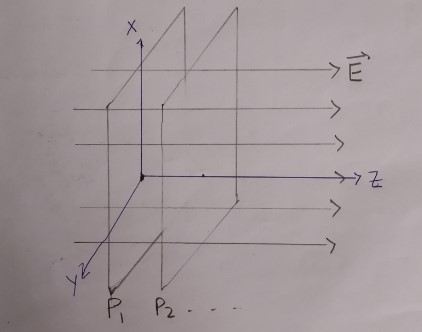 X
E
Z
Y
P1 P2 . . . .